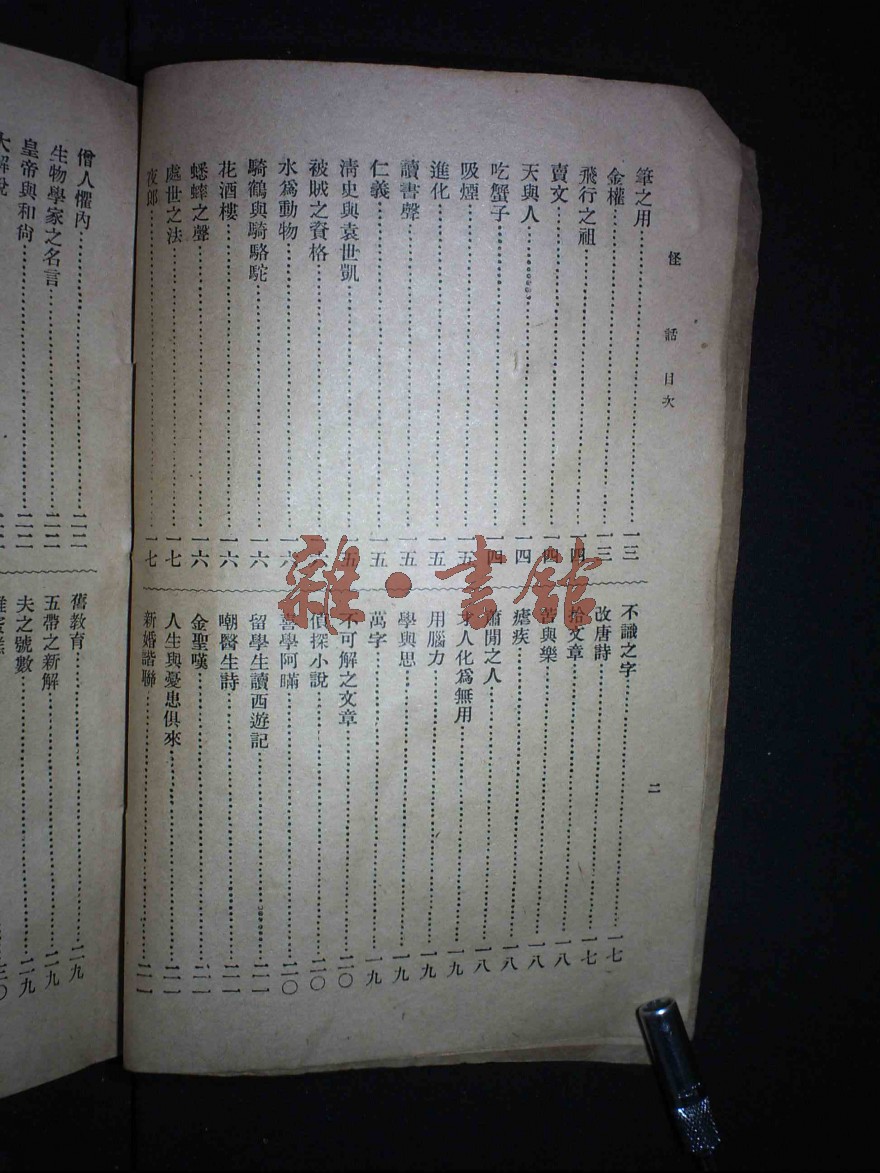 怪話目次
二
筆之用……一三
金權……一三
飛行之祖……一四
賣文……一四
天與人……一四
吃蟹子……一四
吸煙……一五
進化……一五
讀書聲……一五
仁義……一五
清史與袁世凱……一五
被賊之資格……一六
水爲動物……一六
騎鶴與騎駱駝……一六
花酒樓……一六
蟋蟀之聲……一六
處世之法……一七
夜郎……一七
不識之字……一七
改唐詩……一七
拾文章……一八
苦與樂……一八
瘧疾……一八
閒之人……一八
人化爲無用……一九
用腦力……一九
學與思……一九
萬字……一九
不可解之文章……二〇
偵探小說……二〇
喜學阿瞞……二〇
留學生讀西遊記……二一
嘲醫生詩……二一
金聖嘆……二一
人生與憂患俱來……二一
新婚諧聯……二一
僧人懼內……二二
生物學家之名言……二二
皇帝與和尙……二二
大解說……二二
舊教育……二九
五帶之新解……二九
夫之號數……二九
三〇
雜·書館